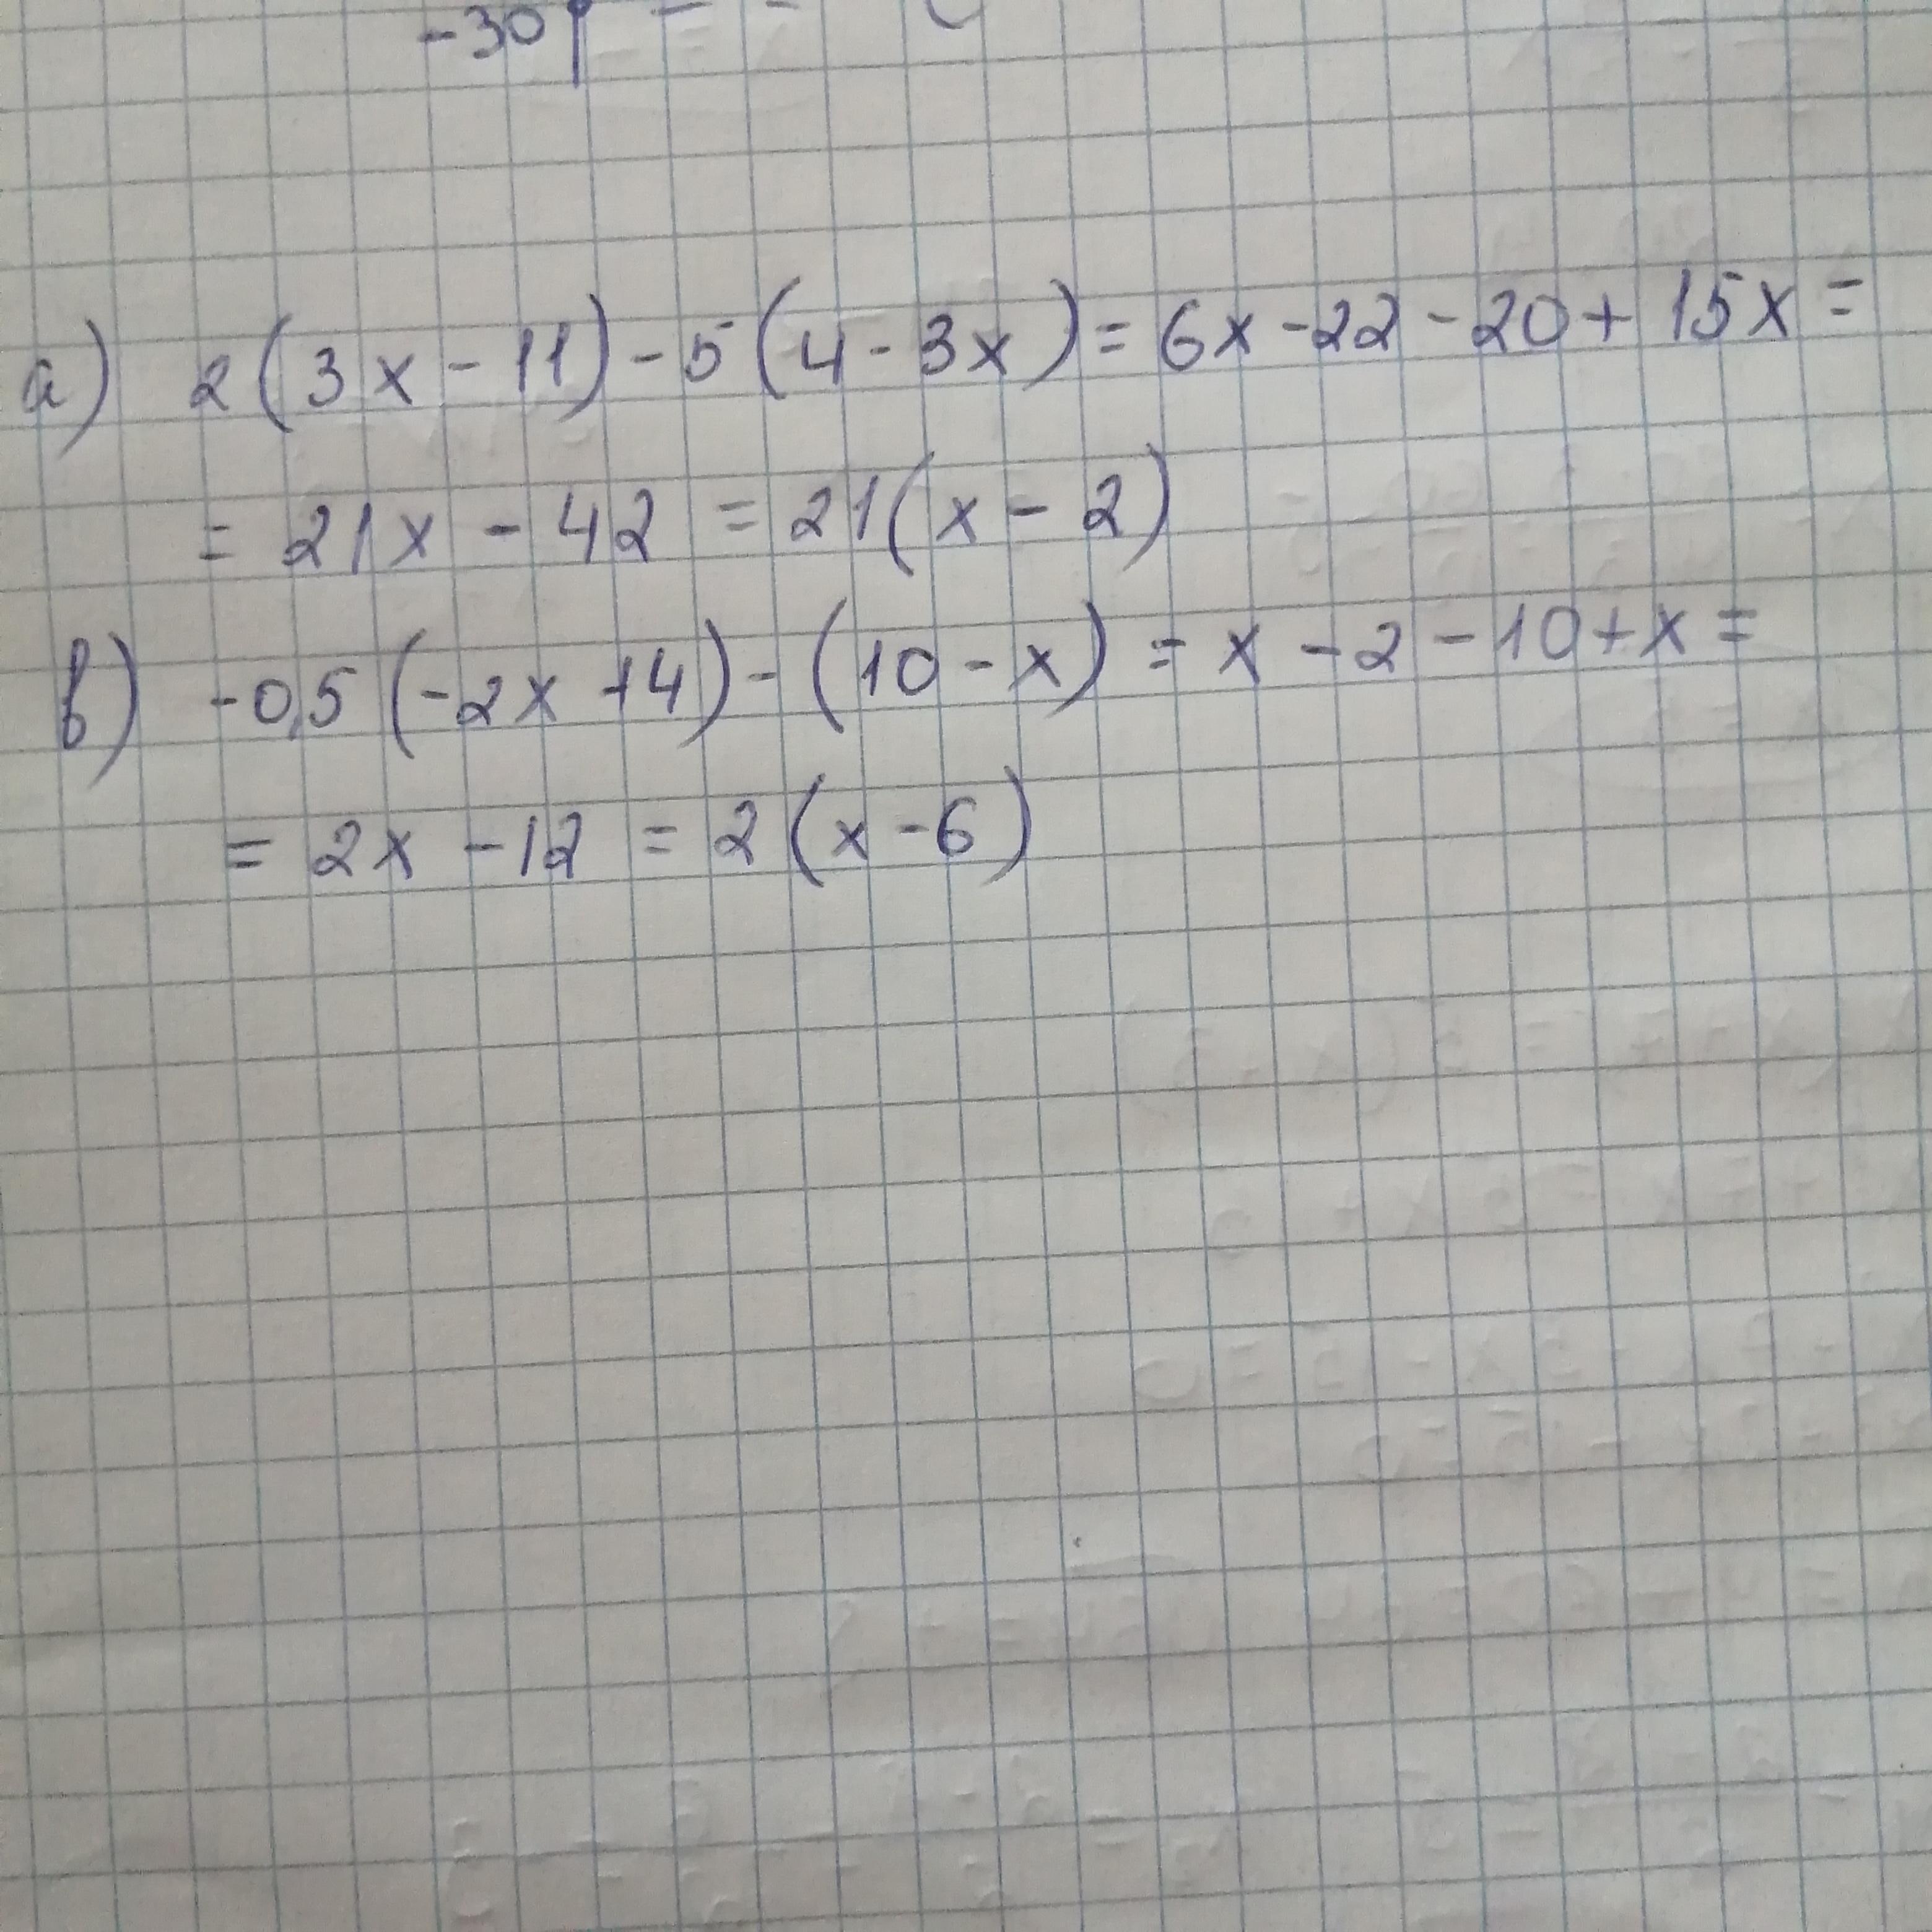 -30
а) 2(3x-11)-5(4-3x)=6x-22-20+15x=
= 21x - 42 = 21(x-2)
в) -0,5(-2x+4)-(10-x)=x-2-10+x=
= 2x-12 = 2(x-6)